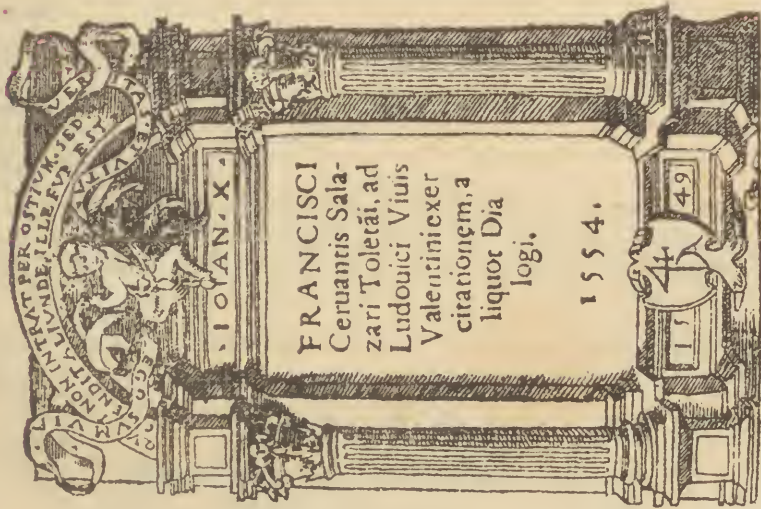 NON INTRAT PER OSTIVM. SED
ENDIT ALIVNDE, ILLE FVR EST
EGO SVM VIA
VER
TAS ET VITA
· IOAN · X ·
FRANCISCI
Ceruantis Sala-
zari Toletãi, ad
Ludouici Viuis
Valentini exer
citationem, a
liquot Dia
logi.
1 5 5 4 .
15 49
4